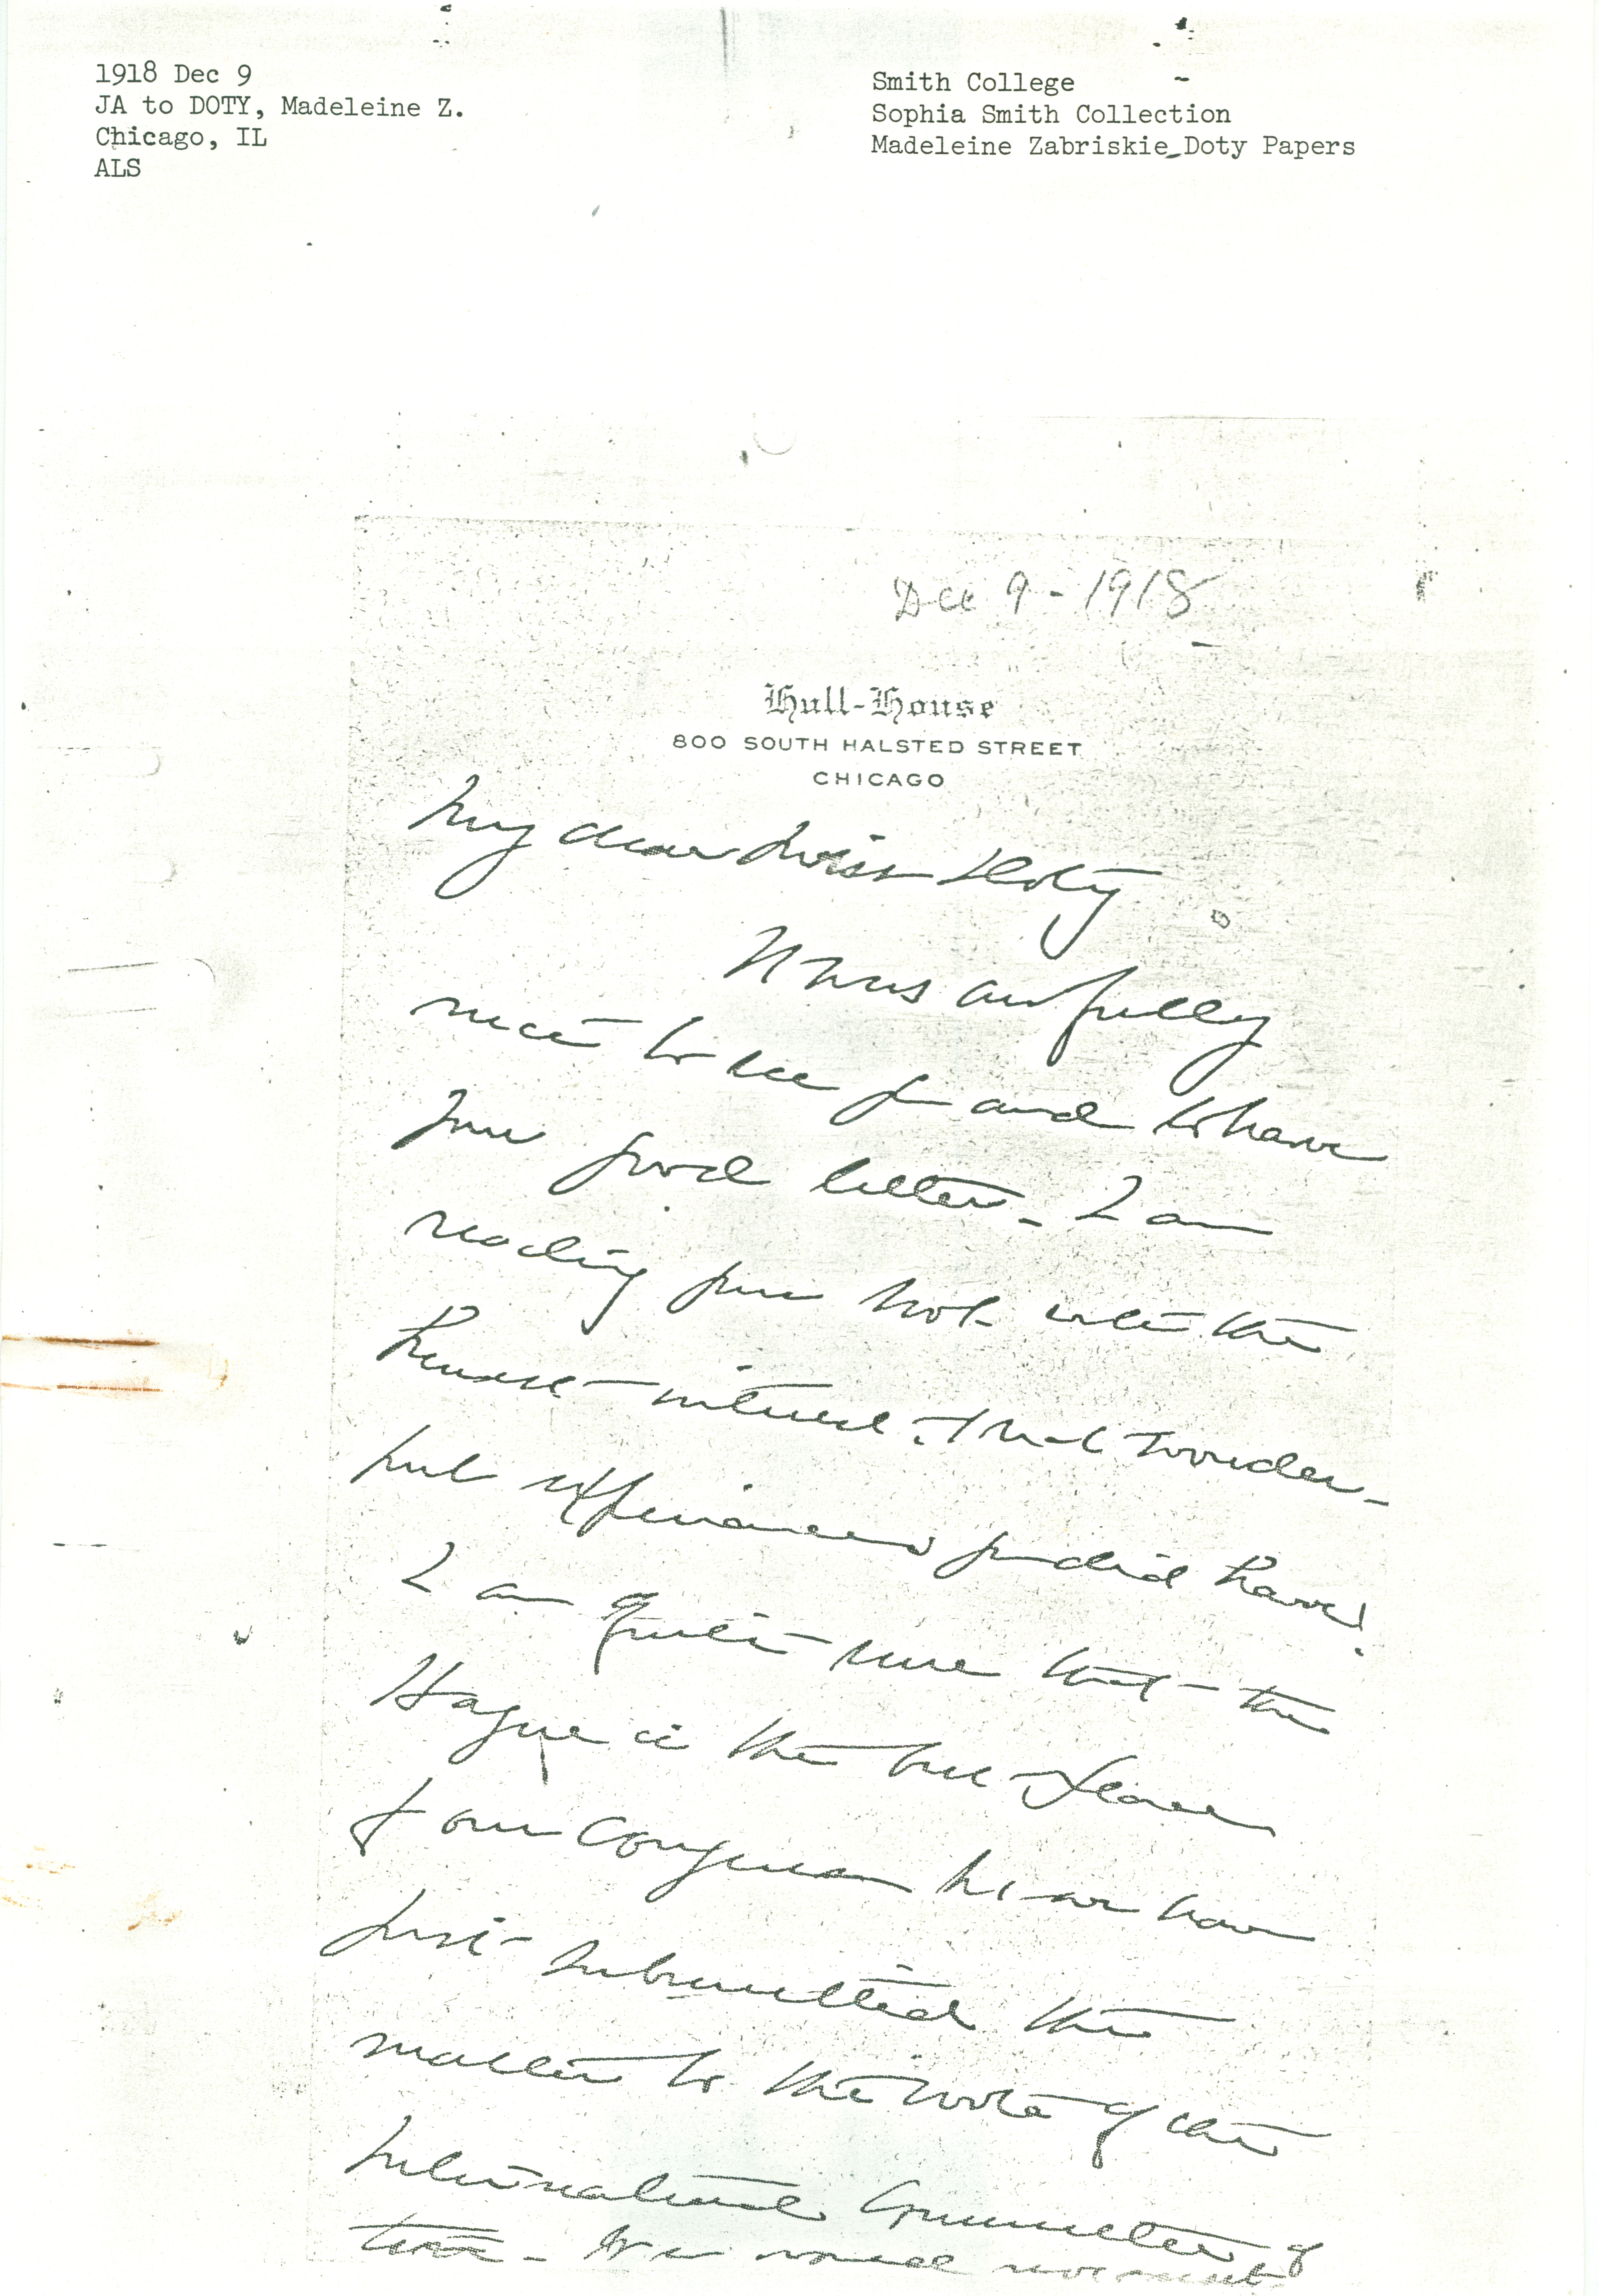 1918 Dec 9
JA to DOTY, Madeleine Z.
Chicago, IL
ALS
Smith College
Sophia Smith Collection
Madeleine Zabriskie Doty Papers
Dec 9 - 1918
Hull-House
800 SOUTH HALSTED STREET
CHICAGO
My dear Miss Doty
It was awfully
nice to see you and to have
your good letter - I am
reading your book with the
keenest interest. What wonder-
ful experiences you did have!
I am quite sure that the
Hague is the best place
for our Congress but we have
just submitted the
matter to the vote of the
International Committee of
- We would not